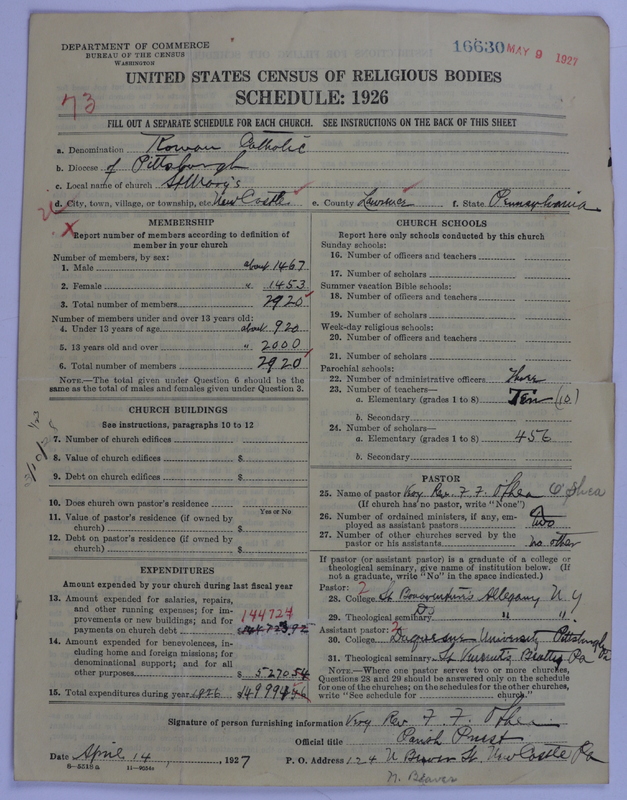 DEPARTMENT OF COMMERCE
BUREAU OF THE CENSUS
WASHINGTON
16630 MAY 9 1927
UNITED STATES CENSUS OF RELIGIOUS BODIES
SCHEDULE: 1926
73
FILL OUT A SEPARATE SCHEDULE FOR EACH CHURCH. SEE INSTRUCTIONS ON THE BACK OF THIS SHEET
a. Denomination Roman Catholic
b. Diocese of Pittsburgh
c. Local name of church St Mary's
d. City, town, village, or township, etc. New Castle e. County Lawrence f. State Pennsylvania
MEMBERSHIP
Report number of members according to definition of member in your church
Number of members, by sex:
1. Male about 1467
2. Female " 1453
3. Total number of members 2920
Number of members under and over 13 years old:
4. Under 13 years of age about 920
5. 13 years old and over " 2000
6. Total number of members 2920
NOTE.—The total given under Question 6 should be the
same as the total of males and females given under Question 3.
CHURCH BUILDINGS
See instructions, paragraphs 10 to 12
7. Number of church edifices
8. Value of church edifices $
9. Debt on church edifices $
10. Does church own pastor's residence
Yes or No
11. Value of pastor's residence (if owned by
church) $
12. Debt on pastor's residence (if owned by
church) $
EXPENDITURES
Amount expended by your church during last fiscal year
13. Amount expended for salaries, repairs,
and other running expenses; for im-
provements or new buildings; and for
payments on church debt 144724
14. Amount expended for benevolences, in-
cluding home and foreign missions; for
denominational support; and for all
other purposes $ 5270 54
15. Total expenditures during year 1926
CHURCH SCHOOLS
Report here only schools conducted by this church
Sunday schools:
16. Number of officers and teachers
17. Number of scholars
Summer vacation Bible schools:
18. Number of officers and teachers
19. Number of scholars
Week-day religious schools:
20. Number of officers and teachers
21. Number of scholars
Parochial schools:
22. Number of administrative officers Three
23. Number of teachers—
a. Elementary (grades 1 to 8) Ten (10.)
b. Secondary
24. Number of scholars—
a. Elementary (grades 1 to 8) 456
b. Secondary
PASTOR
25. Name of pastor Very Rev. F. F. O'Shea O'Shea
(If church has no pastor, write "None")
26. Number of ordained ministers, if any, em-
ployed as assistant pastors Two
27. Number of other churches served by the
pastor or his assistants no other
If pastor (or assistant pastor) is a graduate of a college or
theological seminary, give name of institution below. (If
not a graduate, write "No" in the space indicated.)
Pastor: 2
28. College St Bonaventure's Allegany N. Y
29. Theological seminary Do " "
Assistant pastor:
30. College Duquesne University Pittsburgh Pa
31. Theological seminary St Vincent's Beatty Pa
NOTE.—Where one pastor serves two or more churches,
Questions 28 and 29 should be answered only on the schedule
for one of the churches; on the schedules for the other churches,
write "See schedule for church."
Signature of person furnishing information Very Rev. F. F. O'Shea
Official title Parish Priest
Date April 14, 1927 P. O. Address 124 N Beaver St. New Castle Pa
8—5518 a
N. Beaver